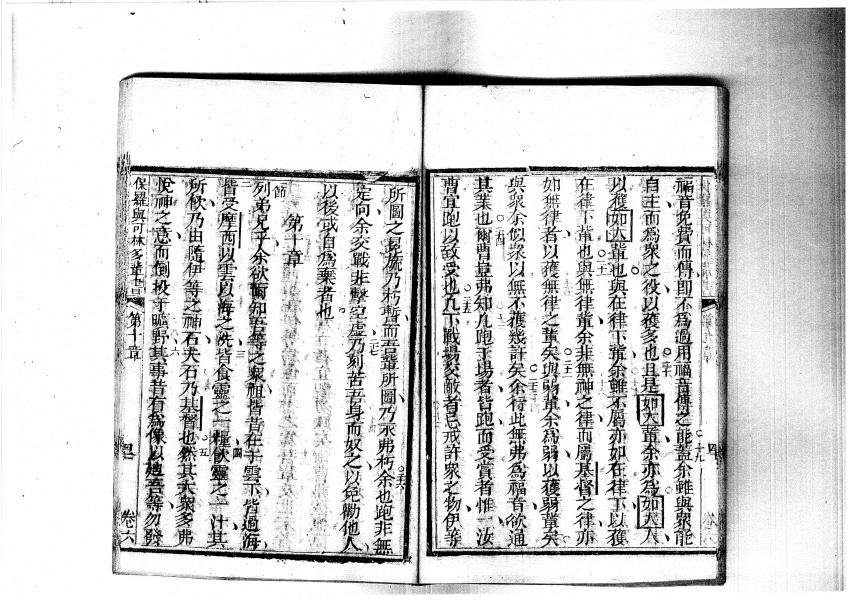 福音免費而傳即不為過用福音傳之能蓋余雖與眾能
自主而為眾之役以獲多也且是如大輩余亦為如大人
以獲如大輩也與在律下輩余雖不屬亦如在律下以獲
在律下輩也與無律輩余非無神之律而屬基督之律亦
如無律者以獲無律之輩矣與弱輩余為弱以獲弱輩矣
與眾余似眾以無不獲幾許矣余行此無弗為福音欲通
其業也爾曹豈弗知凡跑于場者皆跑而受賞者惟一汝
曹宜跑以致受也凡下戰場交敵者忌戒許眾之物伊等
所圖之冕旒乃朽暫而吾輩所圖乃永弗朽余也跑非無
定向余交戰非擊空虛乃刻苦吾身而奴之以免勸他人
以後或自為棄者也
第十章
節
列弟兄乎余欲爾知吾等之眾祖皆昔在于雲下皆過海
皆受摩西以雲以海之洗皆食靈之一糧飲靈之一汁其
所飲乃由隨伊等之神石夫石乃基督也然其大眾多弗
悅神之意而倒投于曠野其事昔有為像以廸吾等勿發
保羅與可林多輩書
第十章
卷六